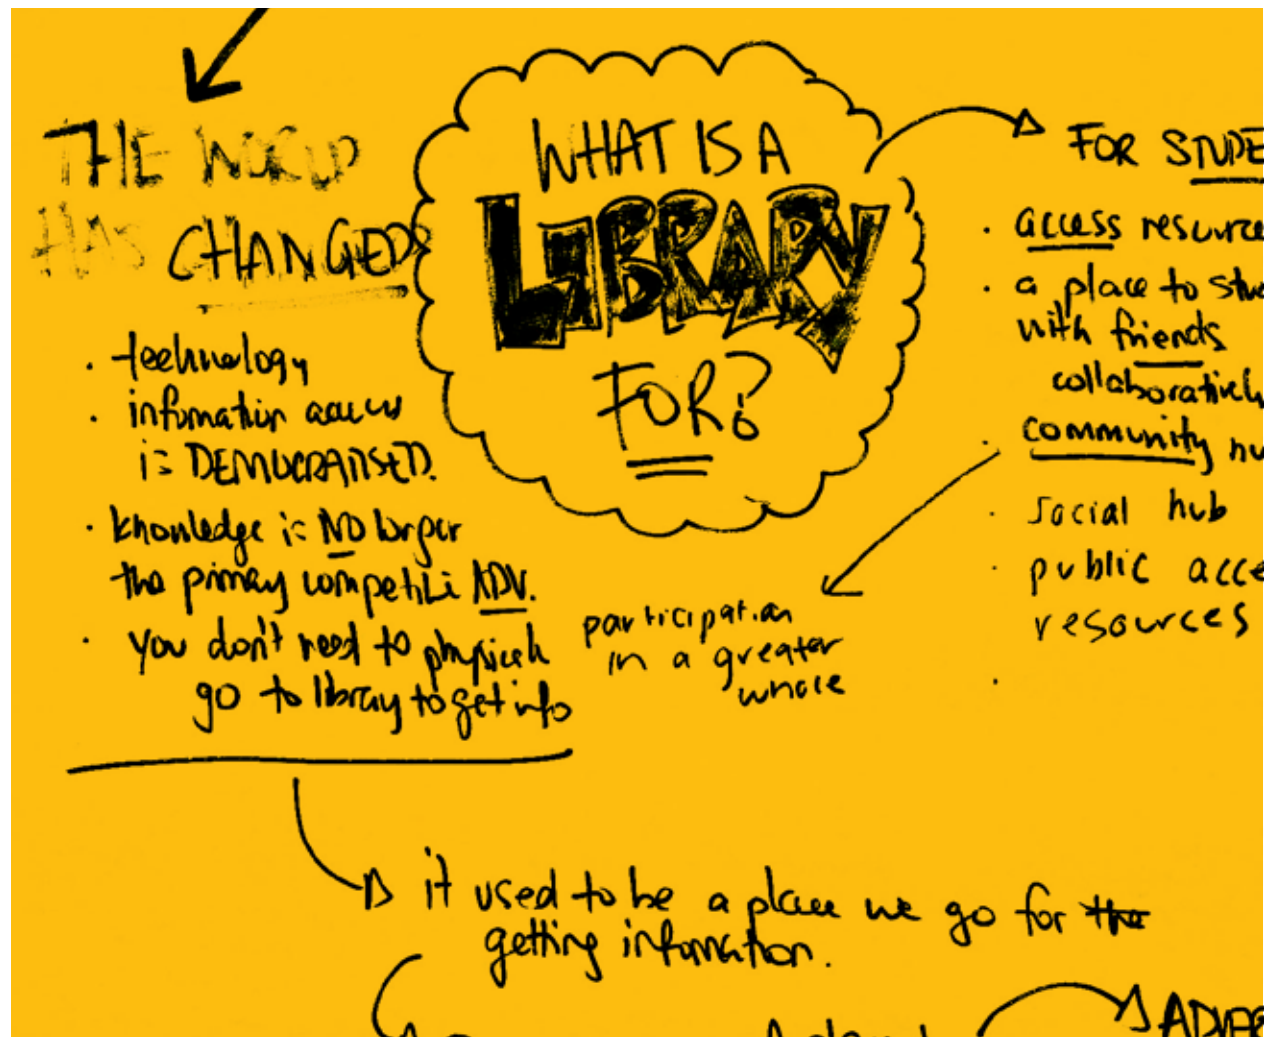 THE WORLD
HAS CHANGED
· technology
· information access
is DEMOCRATISED.
· knowledge is NO longer
the primary competiti ADV.
· you don't need to physicaly
go to library to get info
WHAT IS A
LIBRARY
FOR?
FOR STUDE
· access resource
· a place to stu
with friends
collaboratively
· community hu
· social hub
· public acce
resources
·
participation
in a greater
whole
it used to be a place we go for the
getting information.